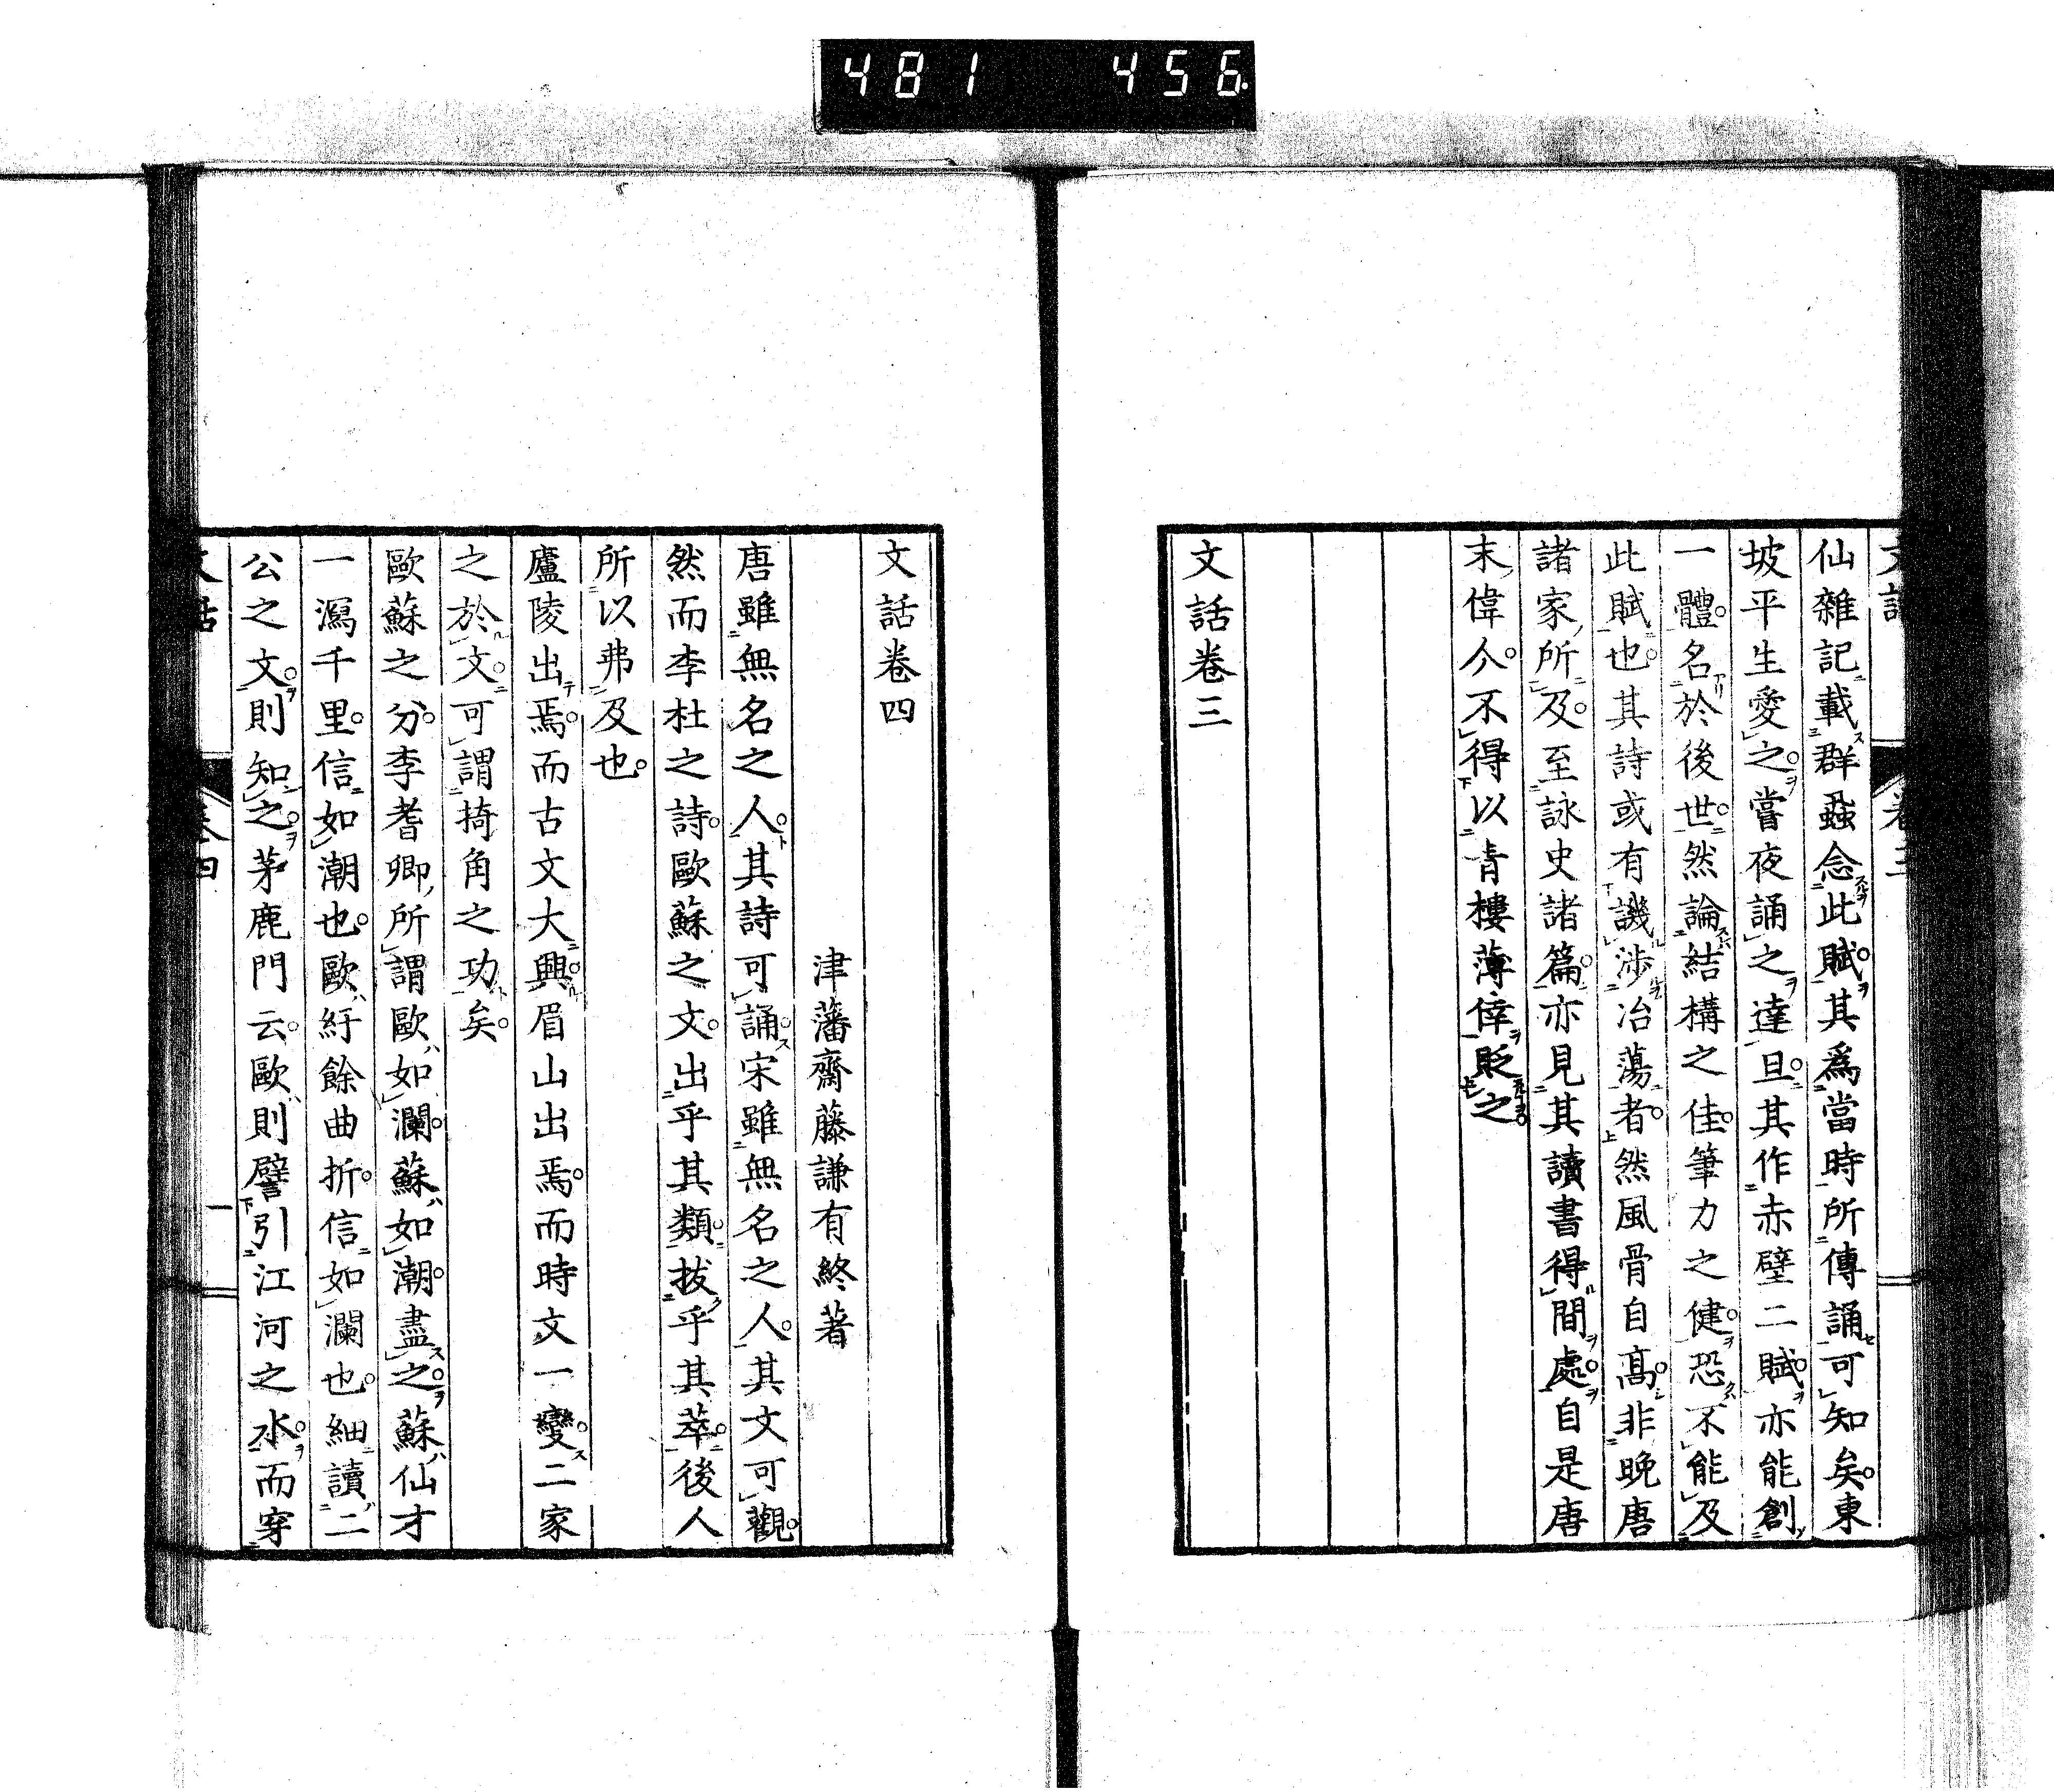 481 456
仙雜記載群蟲念此賦其爲當時所傳誦可知矣東
坡平生愛之嘗夜誦之達旦其作赤壁二賦亦能創
一體名於後世然論結構之佳筆力之健恐不能及
此賦也其詩或有譏涉冶蕩者然風骨自高非晚唐
諸家所及至詠史諸篇亦見其讀書得間處自是唐
末偉人不得以青樓薄倖貶之
文話卷三
文話卷四
津藩齋藤謙有終著
唐雖無名之人其詩可誦宋雖無名之人其文可觀
然而李杜之詩歐蘇之文出乎其類拔乎其萃後人
所以弗及也
廬陵出焉而古文大興眉山出焉而時文一變二家
之於文可謂掎角之功矣
歐蘇之分李耆卿所謂歐如瀾蘇如潮盡之蘇仙才
一瀉千里信如潮也歐紆餘曲折信如瀾也細讀二
公之文則知之茅鹿門云歐則譬引江河之水而穿
一